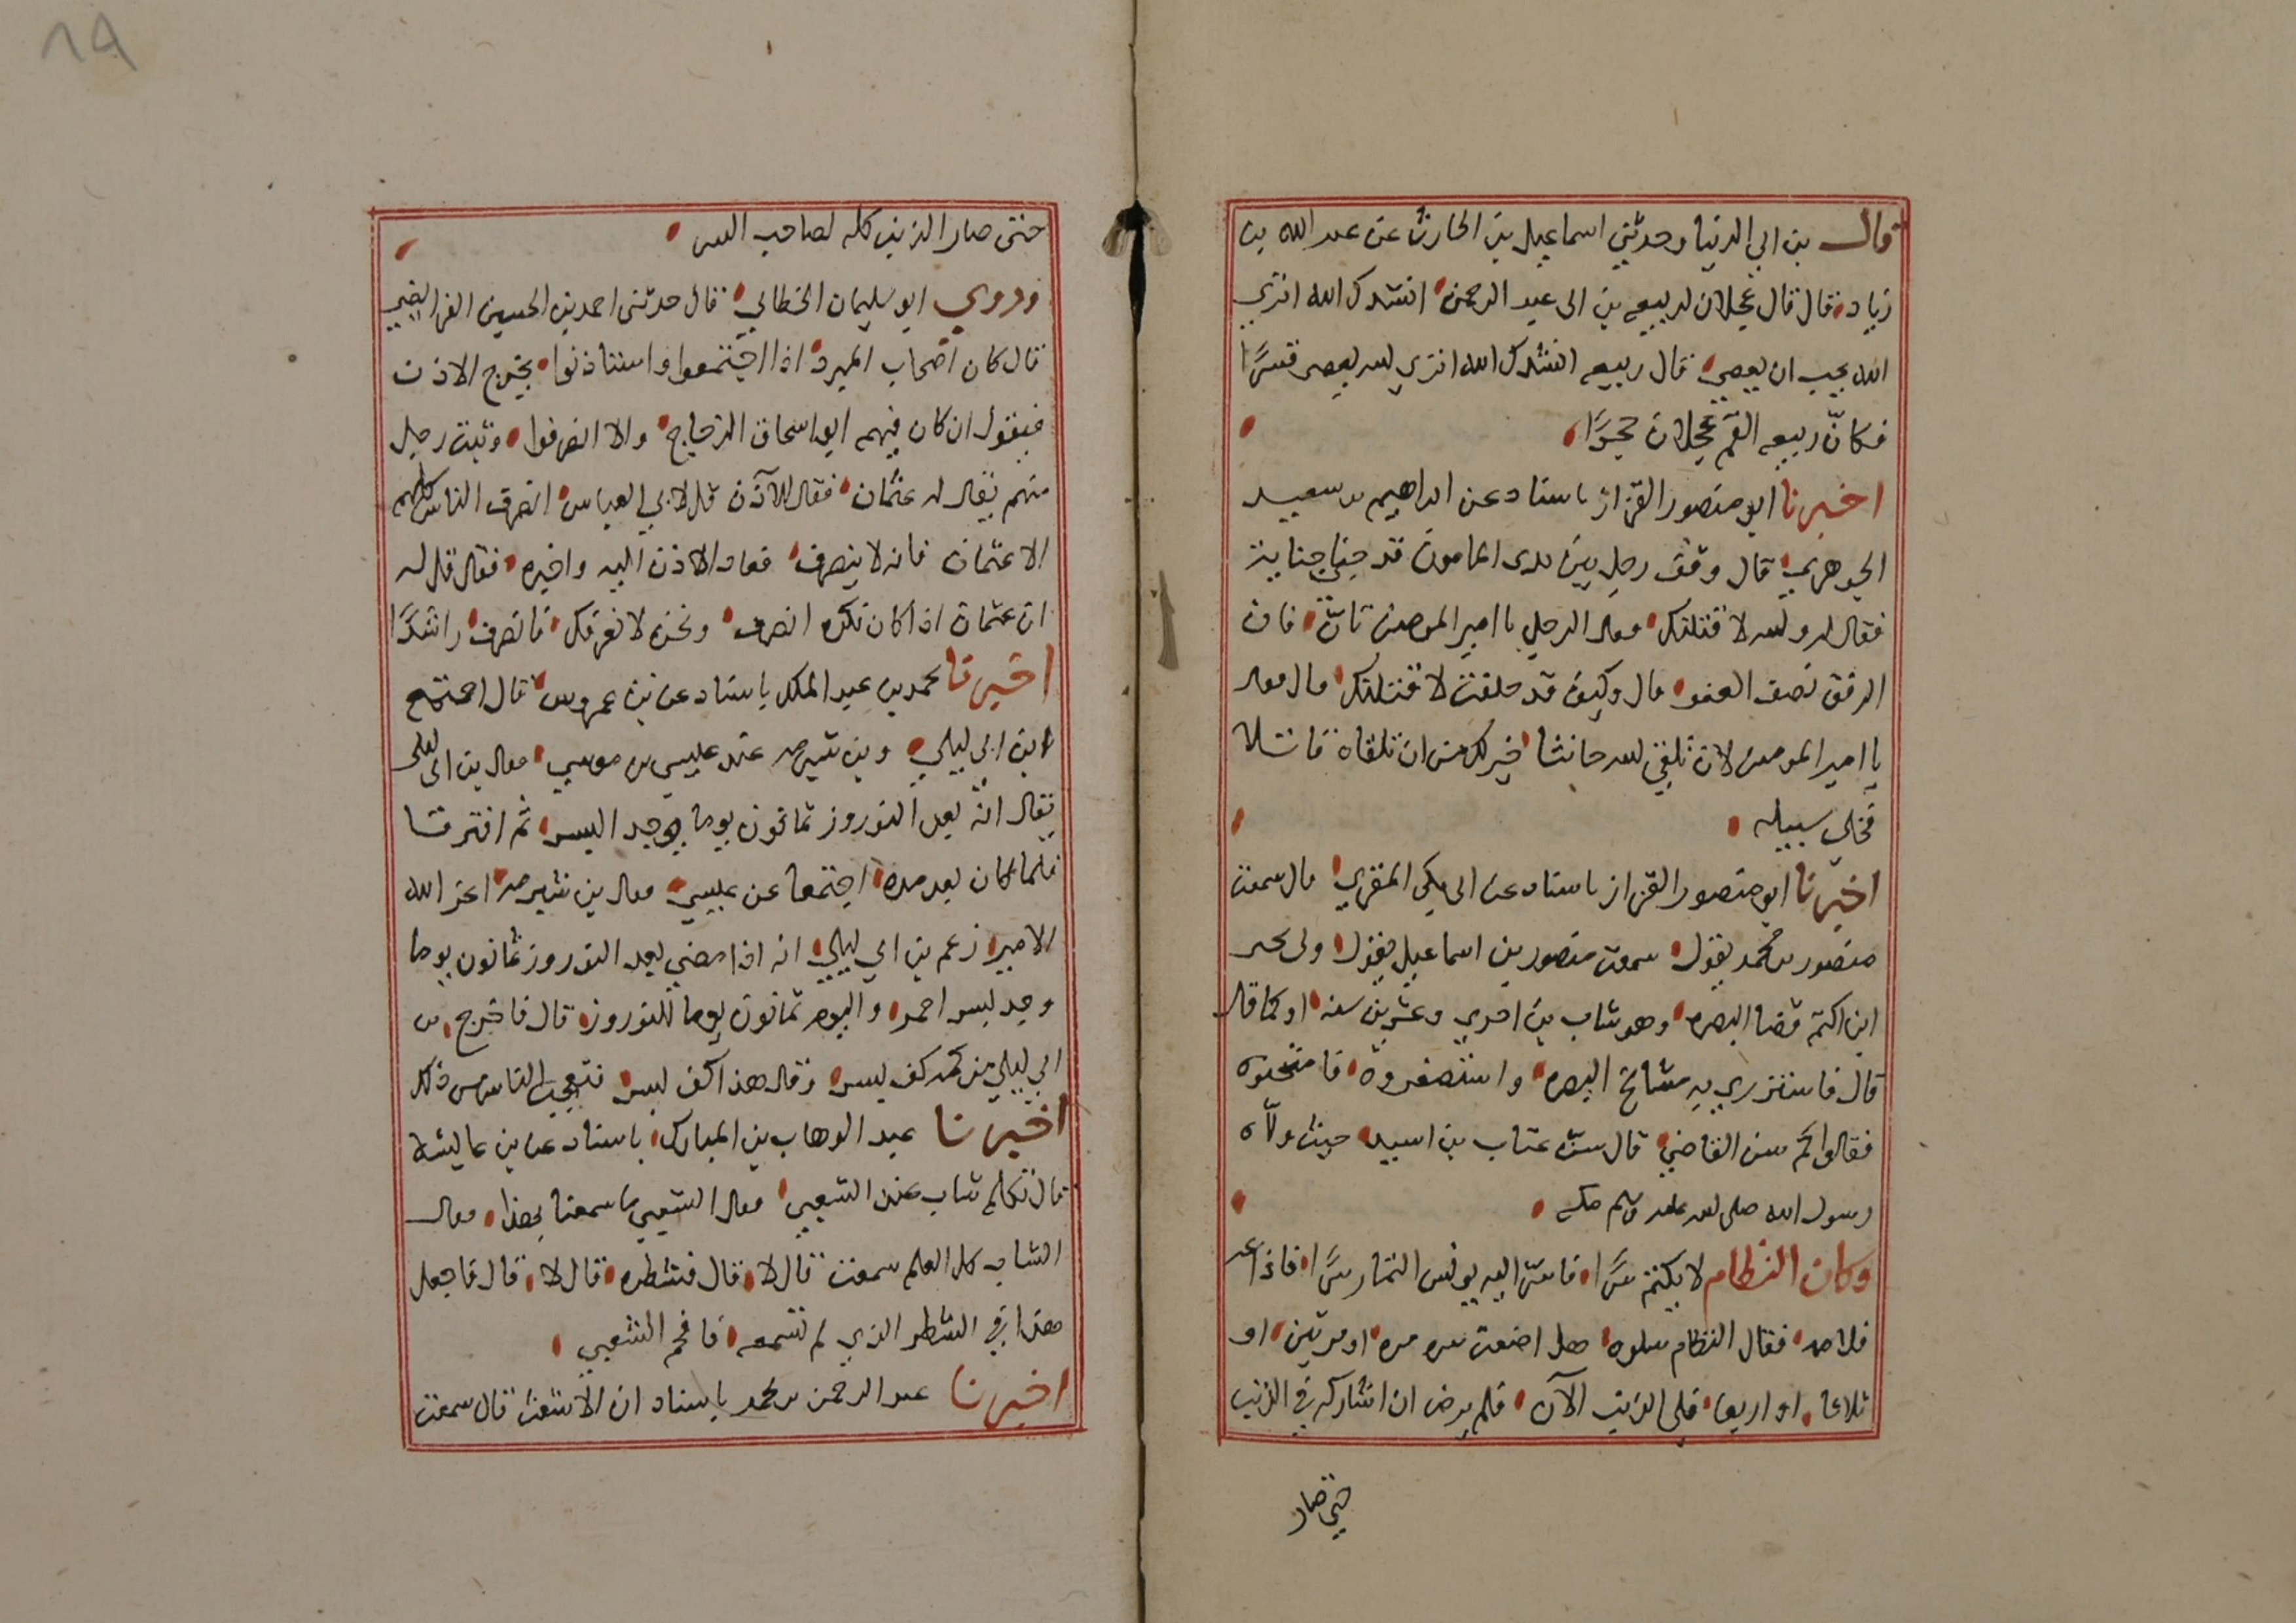 قال بن ابي الدنيا وحدثني اسماعيل بن الحارث عن عبد الله بن
زياد قال قال غيلان لربيعه بن ابى عبد الرحمن انشدك الله اترى
الله يحب ان يعصى قال ربيعه انشدك الله اترى الله يعصى قسرًا
فكانّ ربيعه القم غيلان حجرًا
اخبرنا ابو منصور القزاز باسناد عن ابراهيم بن سعيد
الجوهري قال وقف رجل بين يدى المامون قد جنى جناية
فقال له والله لاقتلنك فقال الرجل يا امير المومنين تانّ فان
الرفق نصف العفو قال وكيف قد حلفت لاقتلنك قال فقال
يا امير المومنين لان تلقى الله حانثا خير لك من ان تلقاه قاتلا
فخلى سبيله
اخبرنا ابو منصور القزاز باسناد عن ابى بكر المقري قال سمعت
منصور بن محمد يقول سمعت منصور بن اسماعيل يقول ولى يحيى
ابن اكثم قضا البصره وهو شاب بن احدى وعشرين سنه او كما قال
قال فاستزرى به مشائخ البصره واستصغروه فامتحنوه
فقالوا كم سن القاضي قال سن عتاب بن اسيد حيث ولّاه
رسول الله صلى الله عليه وسلم مكه
وكان النظام لا يكتم سرًّا فاسرّ اليه يونس التمار سرًّا فاذاعه
فلامه فقال النظام سلوه هل اضعت سره مره او مرتين او
ثلاثا او اربعا فلمن الذنب الآن فلم يرض ان اشاركه في الذنب
حتى صار
حتى صار الذنب كله لصاحب السر
وروي ابو سليمان الخطابي قال حدثنى احمد بن الحسين الفرايضي
قال كان اصحاب المبرد اذا اجتمعوا واستاذنوا يخرج الاذن
فيقول ان كان فيهم ابو اسحاق الزجاج والا انصرفوا وثبت رجل
منهم يقال له عثمان فقال للآذن قل لابي العباس انصرف الناس كلهم
الا عثمان فانه لا ينصرف فعاد الاذن اليه واخبره فقال قل له
ان عثمان اذا كان نكره انصرف ونحن لا نعرفك فانصرف راشدًا
اخبرنا محمد بن عبد الملك باسناد عن بن عمروس قال اجتمع
ابن ابى ليلى وبن شبرمه عند عيسى بن موسى فقال بن ابى ليلى
يقال انّه بعد النوروز ثمانون يوما يوجد البسر ثم افترقا
فلما كان بعد مده اجتمعا عن عيسى فقال بن شبرمه اعز الله
الامير زعم بن ابى ليلى انه اذا مضى بعد النوروز ثمانون يوما
وجد بسر احمر واليوم ثمانون يوما للنوروز قال فاخرج بن
ابى ليلى من كمه كف بسر وقال هذا كف بسر فتعجب الناس من ذلك
اخبرنا عبد الوهاب بن المبارك باسناد عن بن عايشه
قال تكلم شاب عند الشعبي فقال الشعبي ما سمعنا بهذا فقال
الشاب كل العلم سمعت قال لا قال فشطره قال لا قال فاجعل
هذا في الشطر الذي لم تسمعه فافحم الشعبي
اخبرنا عبد الرحمن بن محمد باسناد ان الاشعث قال سمعت